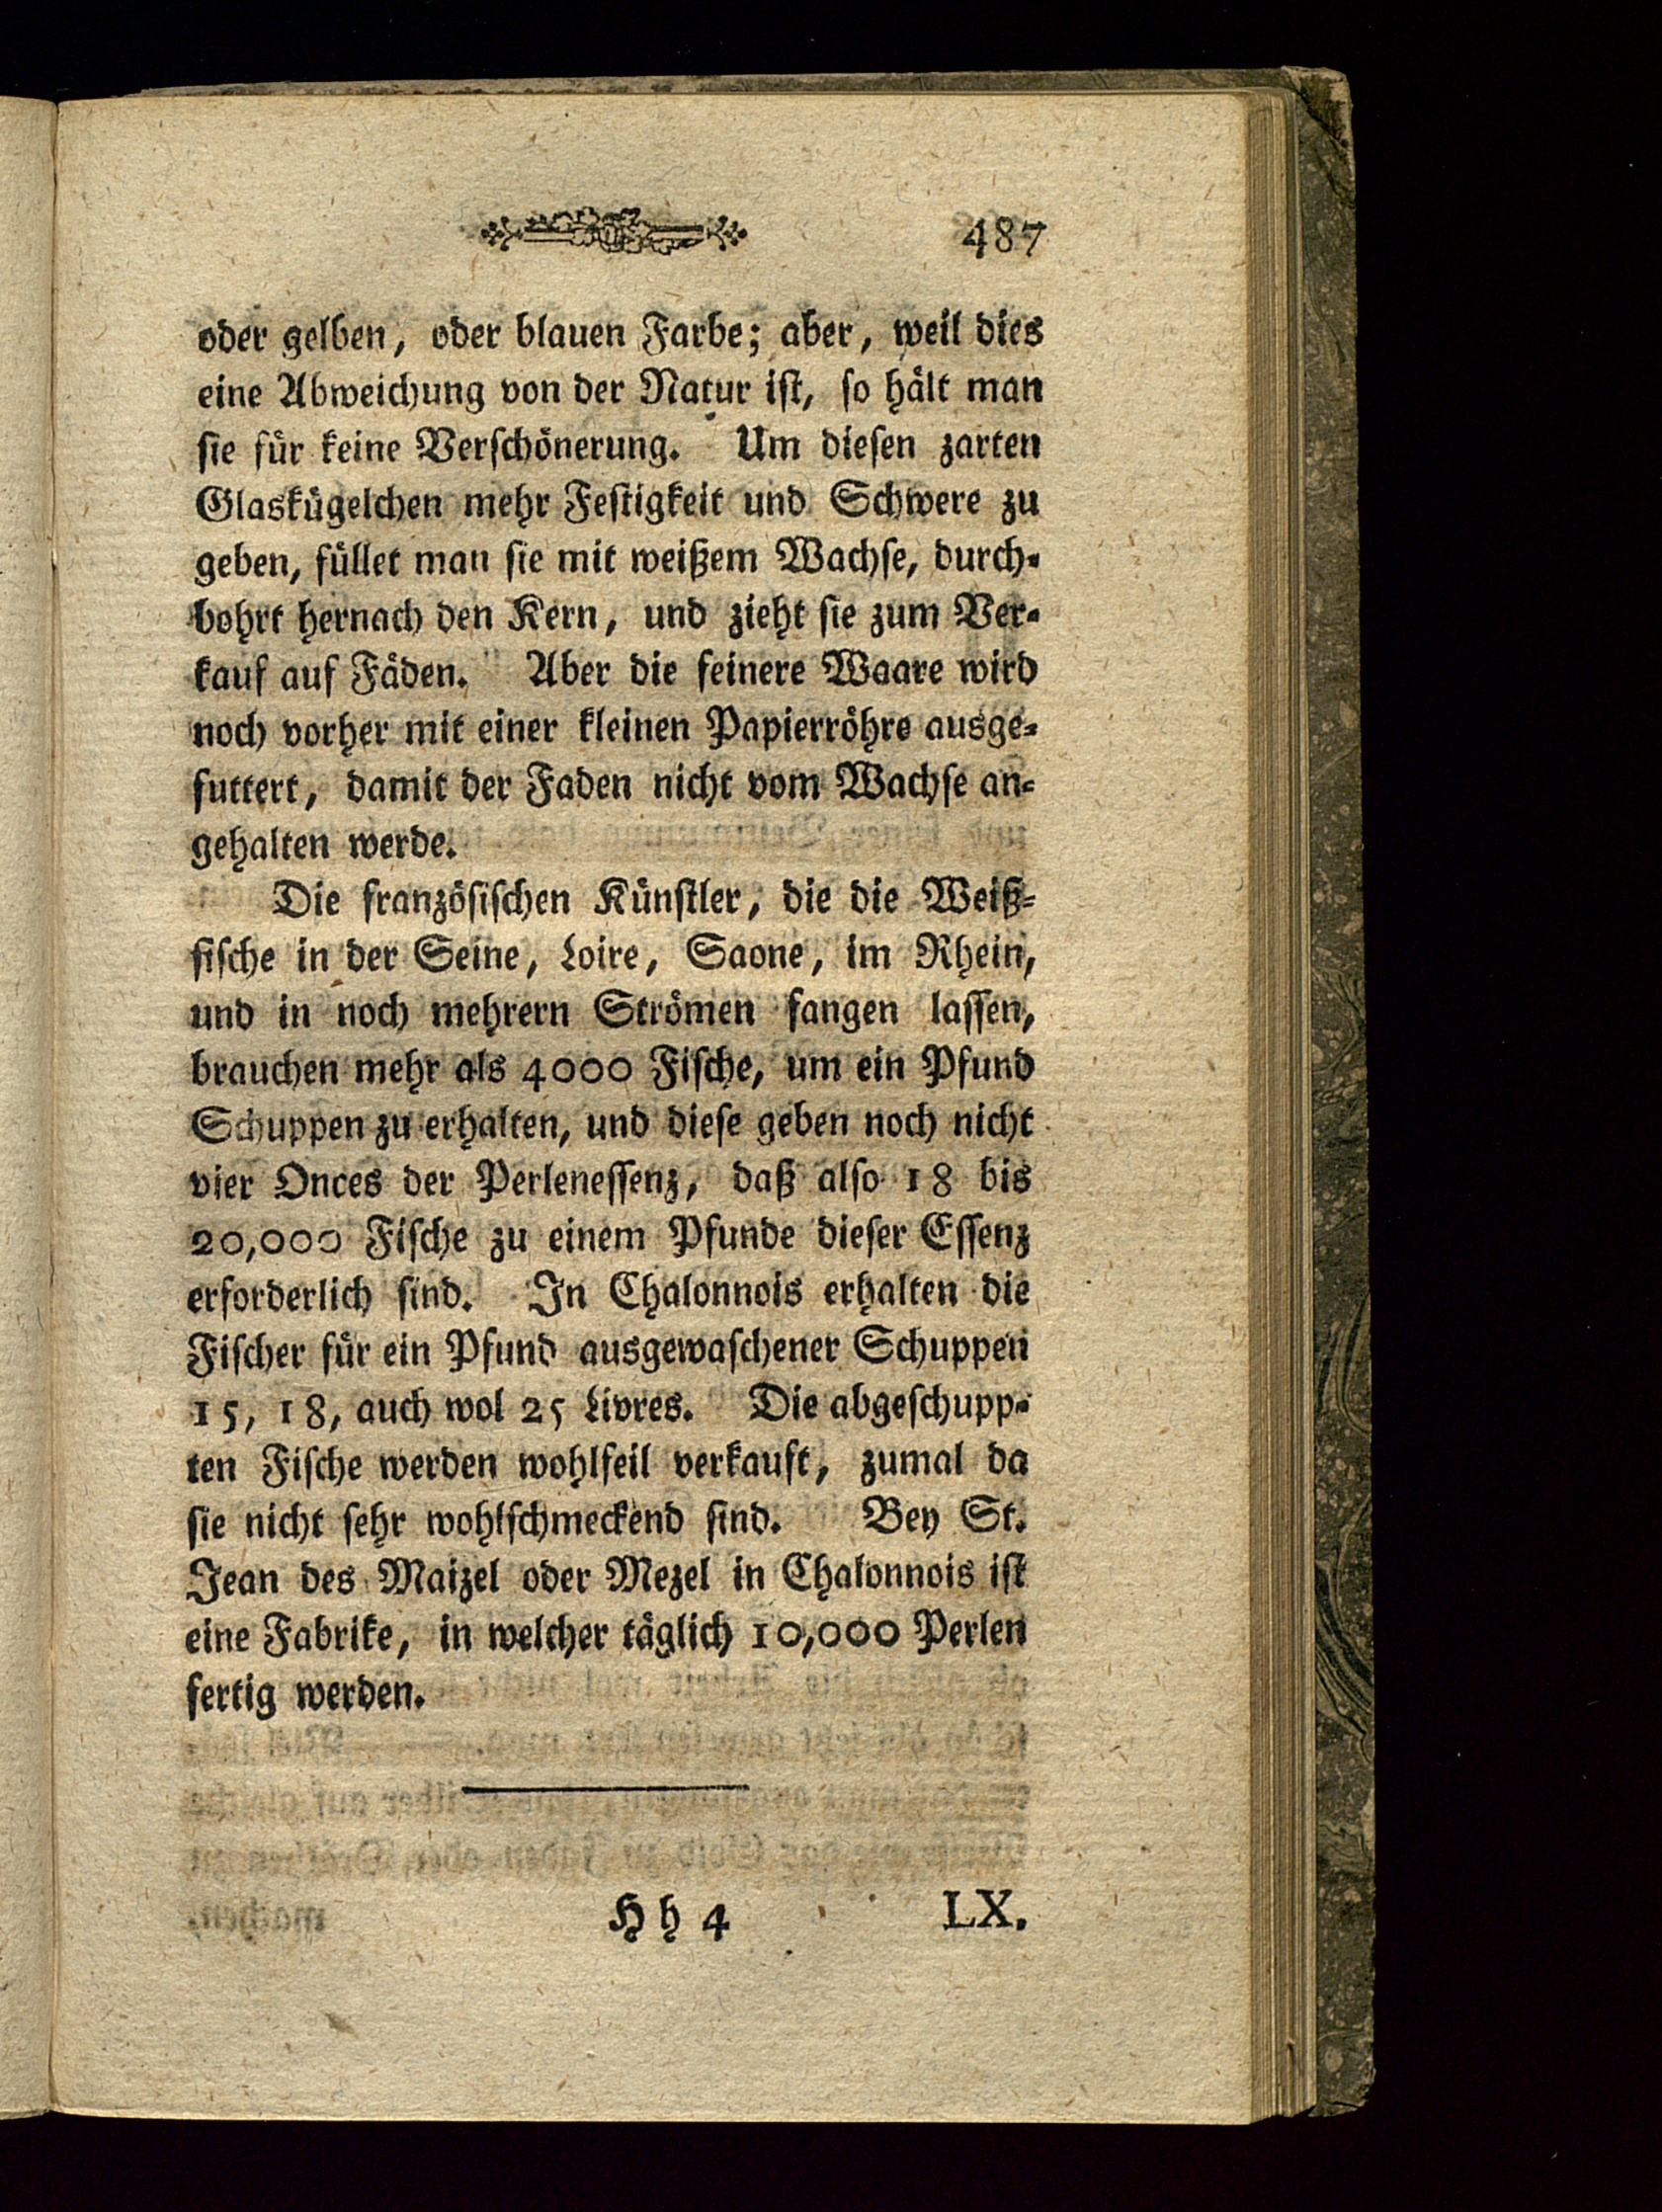 487
oder gelben, oder blauen Farbe; aber, weil dies
eine Abweichung von der Natur iſt, ſo hält man
ſie für keine Verſchönerung. Um dieſen zarten
Glaskügelchen mehr Feſtigkeit und Schwere zu
geben, füllet man ſie mit weißem Wachſe, durch-
bohrt hernach den Kern, und zieht ſie zum Ver-
kauf auf Fäden. Aber die feinere Waare wird
noch vorher mit einer kleinen Papierröhre ausge-
futtert, damit der Faden nicht vom Wachſe an-
gehalten werde.
Die franzöſiſchen Künſtler, die die Weiß-
fiſche in der Seine, Loire, Saone, im Rhein,
und in noch mehrern Strömen fangen laſſen,
brauchen mehr als 4000 Fiſche, um ein Pfund
Schuppen zu erhalten, und dieſe geben noch nicht
vier Onces der Perleneſſenz, daß alſo 18 bis
20,000 Fiſche zu einem Pfunde dieſer Eſſenz
erforderlich ſind. In Chalonnois erhalten die
Fiſcher für ein Pfund ausgewaſchener Schuppen
15, 18, auch wol 25 Livres. Die abgeſchupp-
ten Fiſche werden wohlfeil verkauft, zumal da
ſie nicht ſehr wohlſchmeckend ſind. Bey St.
Jean des Maizel oder Mezel in Chalonnois iſt
eine Fabrike, in welcher täglich 10,000 Perlen
fertig werden.
Hh 4 LX.